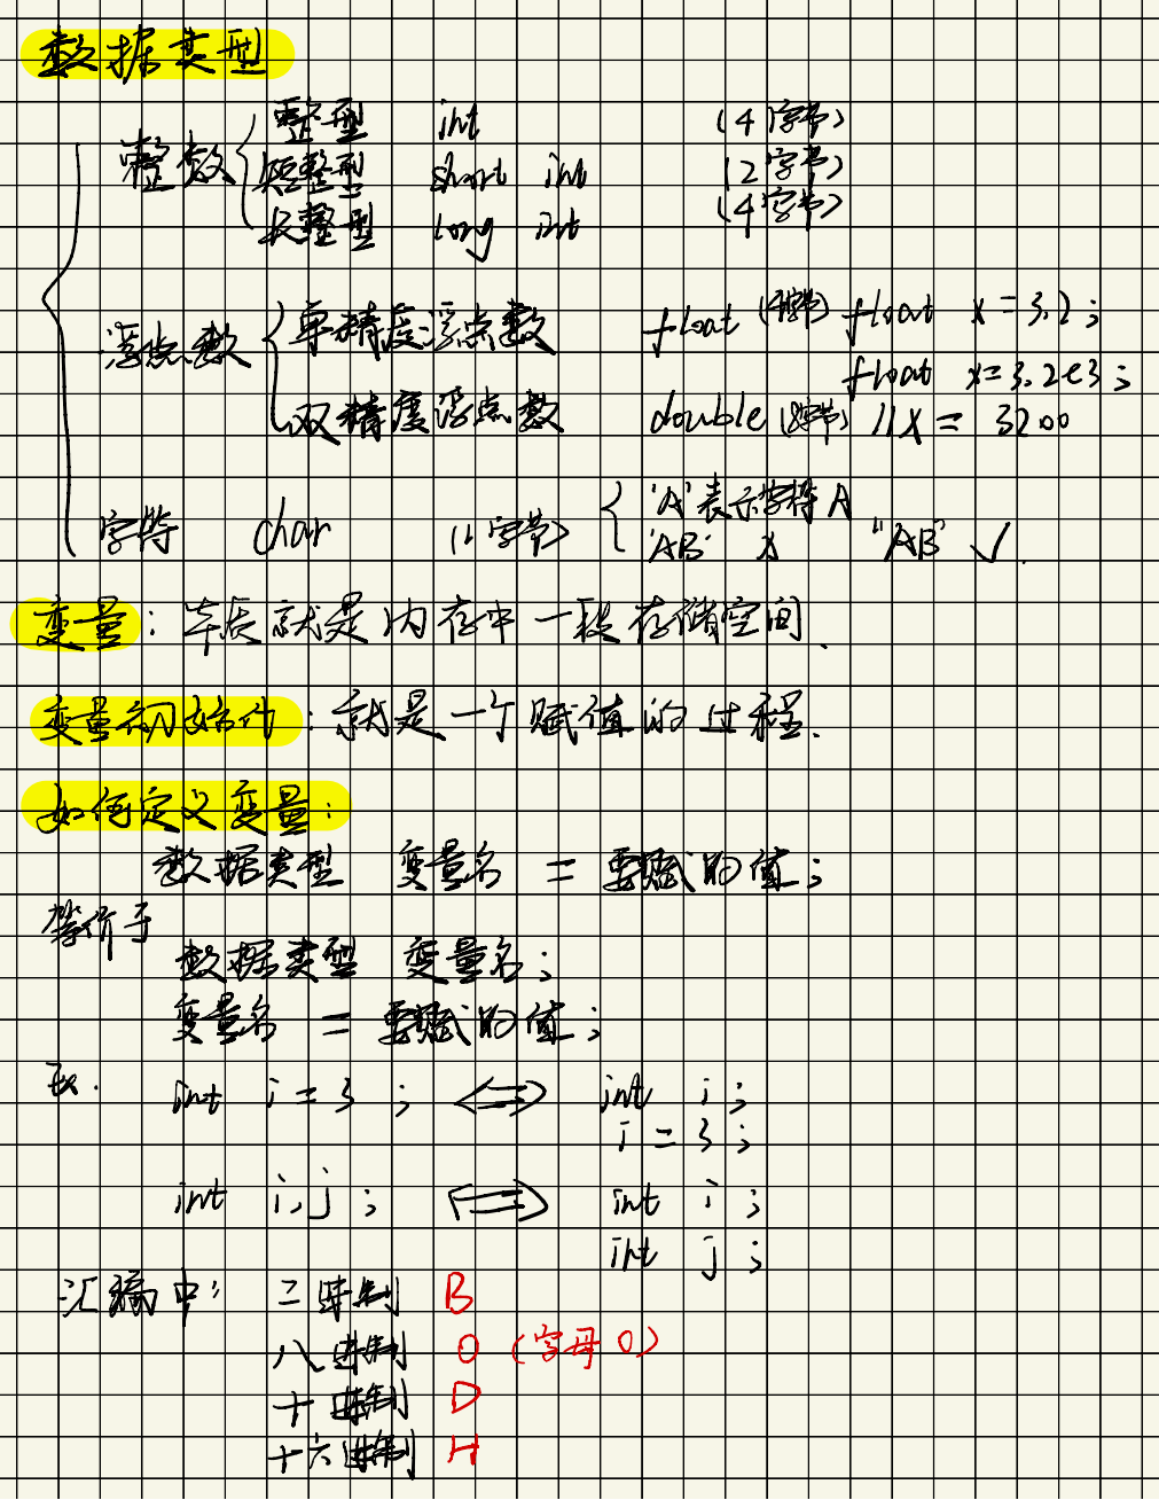 数据类型
整数 整型 int (4字节)
短整型 short int (2字节)
长整型 long int (4字节)
浮点数 单精度浮点数 float (4字节) float x = 3.2;
float x = 3.2e3;
双精度浮点数 double (8字节) //x = 3200
字符 char (1字节) 'A'表示字符A
'AB' x "AB" ✓.
变量: 本质就是内存中一段存储空间.
变量初始化: 就是一个赋值的过程.
如何定义变量:
数据类型 变量名 = 要赋的值;
等价于
数据类型 变量名;
变量名 = 要赋的值;
Ex.
int i = 3 ; <=> int i ;
i = 3 ;
int i,j ; <=> int i ;
int j ;
汇编中: 二进制 B
八进制 O (字母O)
十进制 D
十六进制 H